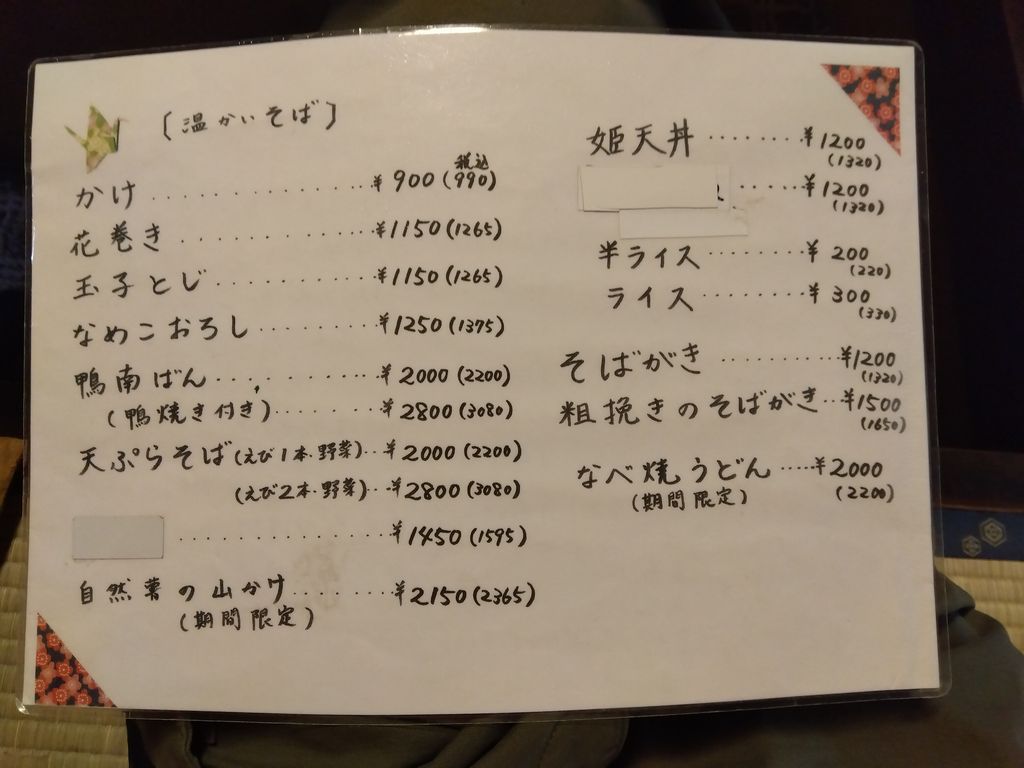 〔温かいそば〕
税込
かけ ‥‥‥‥‥‥ ¥900(990)
花巻き ‥‥‥‥‥‥ ¥1150(1265)
玉子とじ ‥‥‥‥‥‥ ¥1150(1265)
なめこおろし ‥‥‥‥‥ ¥1250(1375)
鴨南ばん ‥‥‥‥‥‥ ¥2000(2200)
(鴨焼き付き) ‥‥‥‥ ¥2800(3080)
天ぷらそば(えび1本・野菜)‥ ¥2000(2200)
(えび2本・野菜)‥ ¥2800(3080)
‥‥‥‥‥‥ ¥1450(1595)
自然薯の山かけ ‥‥‥‥ ¥2150(2365)
(期間限定)
姫天丼 ‥‥‥‥ ¥1200
(1320)
‥‥‥ ¥1200
(1320)
半ライス ‥‥‥‥ ¥200
(220)
ライス ‥‥‥‥ ¥300
(330)
そばがき ‥‥‥‥‥ ¥1200
(1320)
粗挽きのそばがき ‥ ¥1500
(1650)
なべ焼うどん ‥‥ ¥2000
(期間限定) (2200)